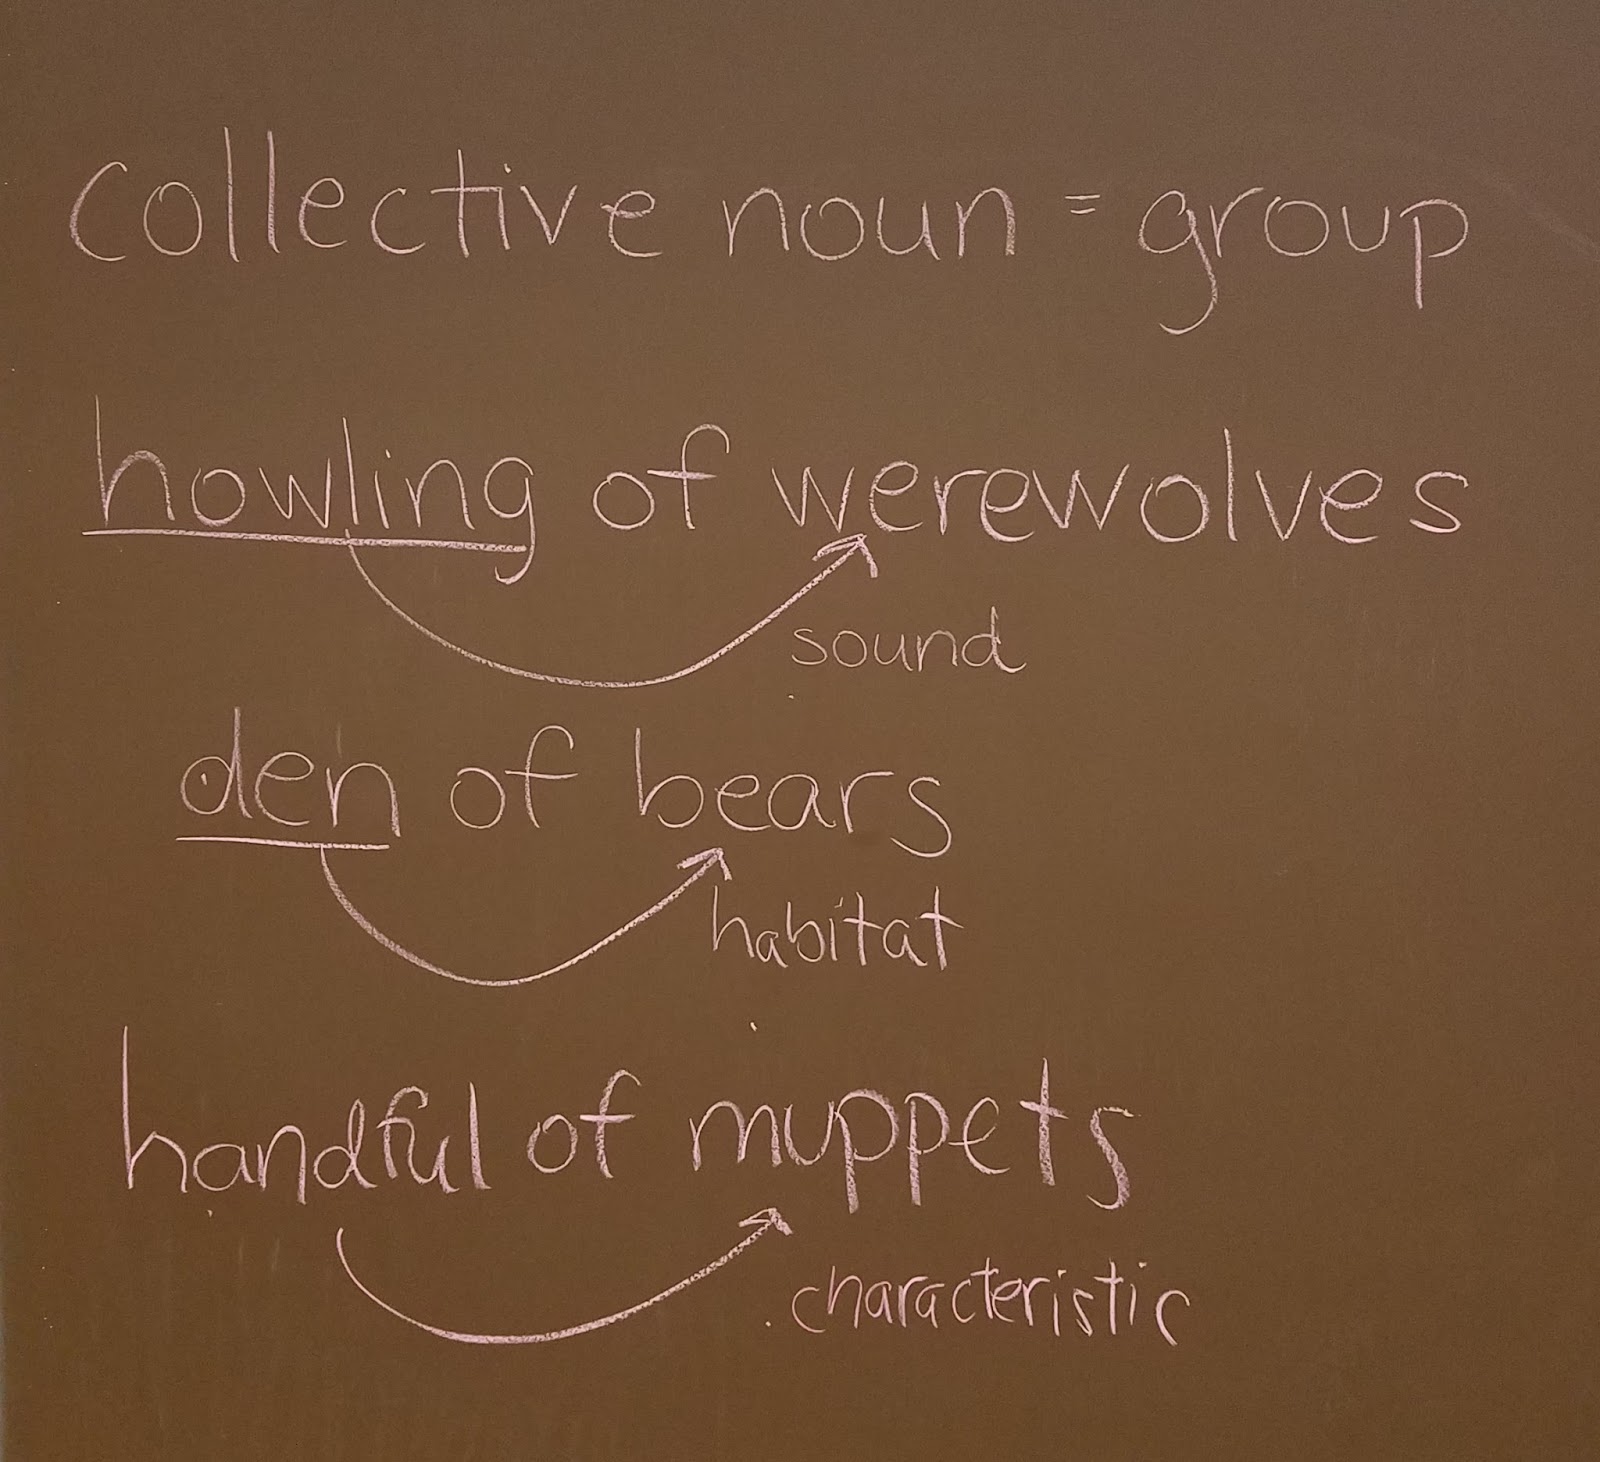 collective noun = group
howling of werewolves
sound
den of bears
habitat
handful of muppets
characteristic